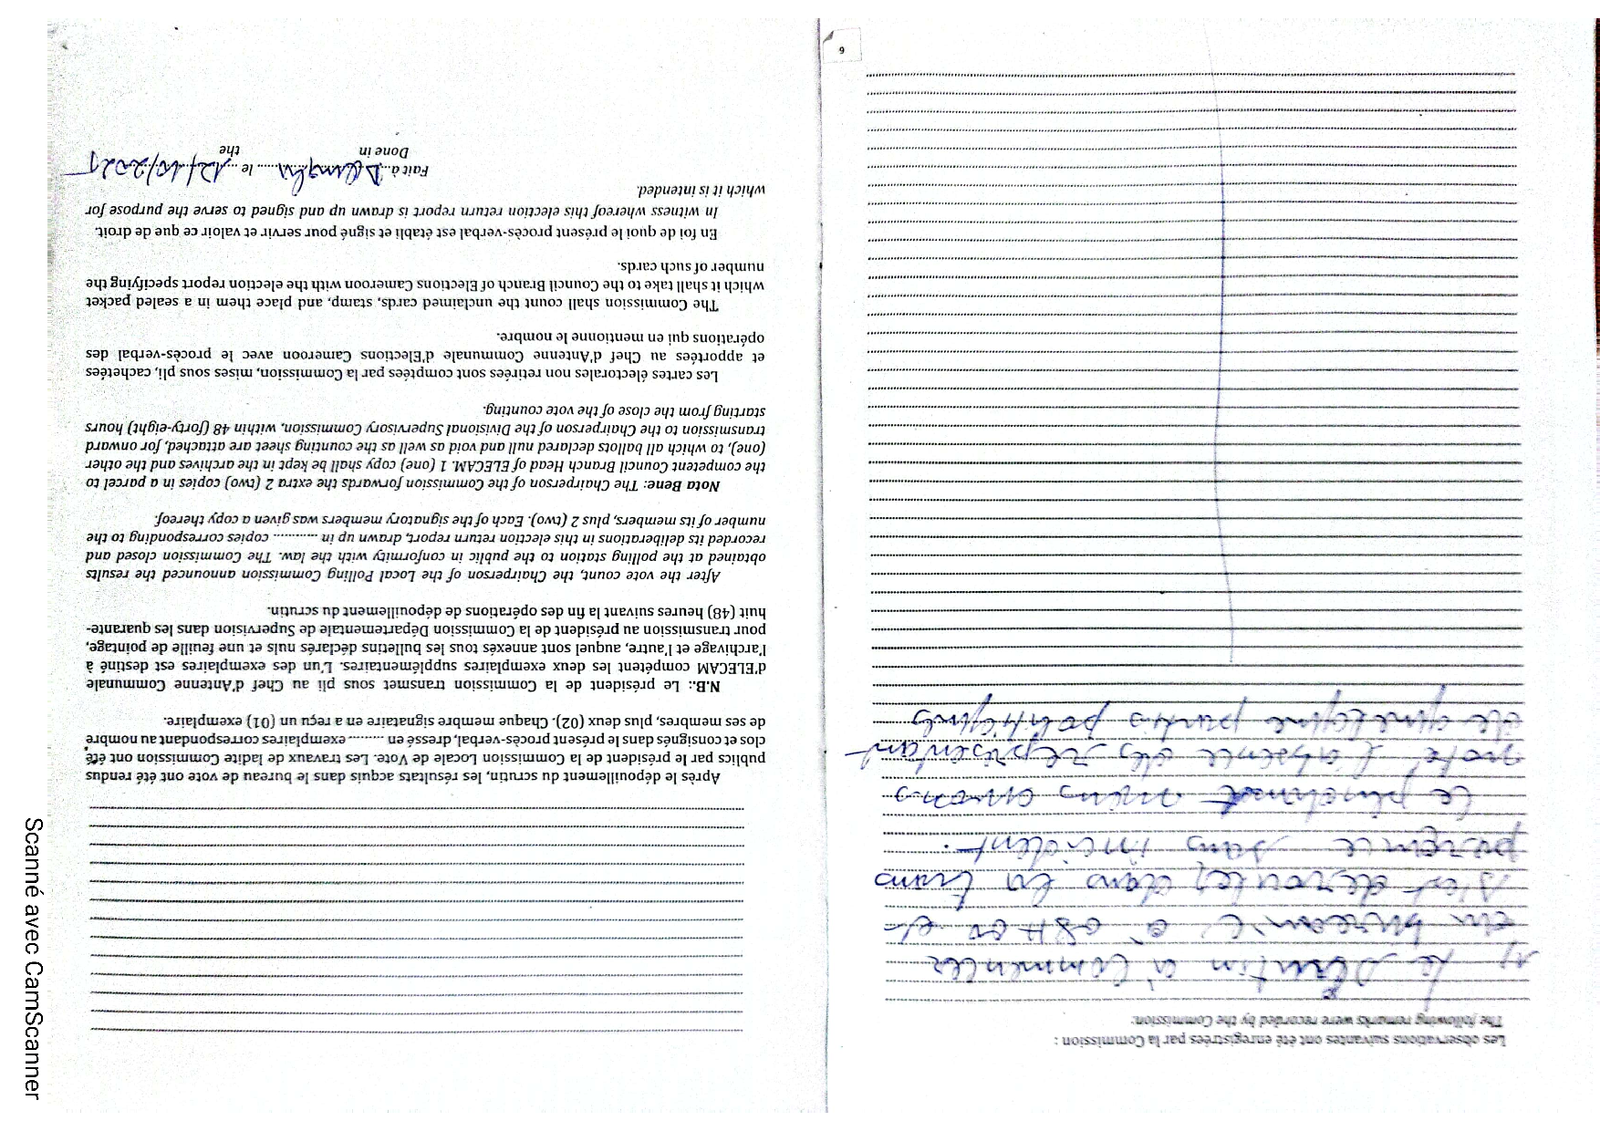 Les observations suivantes ont été enregistrées par la Commission :
The following remarks were recorded by the Commission:
1) Le Scrutin a commencer
au bureau C a 08H00 et
s'est derouler dans la trans
parence sans incident.
Le président nous avons
noté l'absence des représentant
de quelque partis politiques
6
Après le dépouillement du scrutin, les résultats acquis dans le bureau de vote ont été rendus
publics par le président de la Commission Locale de Vote. Les travaux de ladite Commission ont été
clos et consignés dans le présent procès-verbal, dressé en ......... exemplaires correspondant au nombre
de ses membres, plus deux (02). Chaque membre signataire en a reçu un (01) exemplaire.
N.B.: Le président de la Commission transmet sous pli au Chef d'Antenne Communale
d'ELECAM compétent les deux exemplaires supplémentaires. L'un des exemplaires est destiné à
l'archivage et l'autre, auquel sont annexés tous les bulletins déclarés nuls et une feuille de pointage,
pour transmission au président de la Commission Départementale de Supervision dans les quarante-
huit (48) heures suivant la fin des opérations de dépouillement du scrutin.
After the vote count, the Chairperson of the Local Polling Commission announced the results
obtained at the polling station to the public in conformity with the law. The Commission closed and
recorded its deliberations in this election return report, drawn up in ........... copies corresponding to the
number of its members, plus 2 (two). Each of the signatory members was given a copy thereof.
Nota Bene: The Chairperson of the Commission forwards the extra 2 (two) copies in a parcel to
the competent Council Branch Head of ELECAM. 1 (one) copy shall be kept in the archives and the other
(one), to which all ballots declared null and void as well as the counting sheet are attached, for onward
transmission to the Chairperson of the Divisional Supervisory Commission, within 48 (forty-eight) hours
starting from the close of the vote counting.
Les cartes électorales non retirées sont comptées par la Commission, mises sous pli, cachetées
et apportées au Chef d'Antenne Communale d'Elections Cameroon avec le procès-verbal des
opérations qui en mentionne le nombre.
The Commission shall count the unclaimed cards, stamp, and place them in a sealed packet
which it shall take to the Council Branch of Elections Cameroon with the election report specifying the
number of such cards.
En foi de quoi le présent procès-verbal est établi et signé pour servir et valoir ce que de droit.
In witness whereof this election return report is drawn up and signed to serve the purpose for
which it is intended.
Fait à.... le 12/10/2025
Done in the
Scanné avec CamScanner